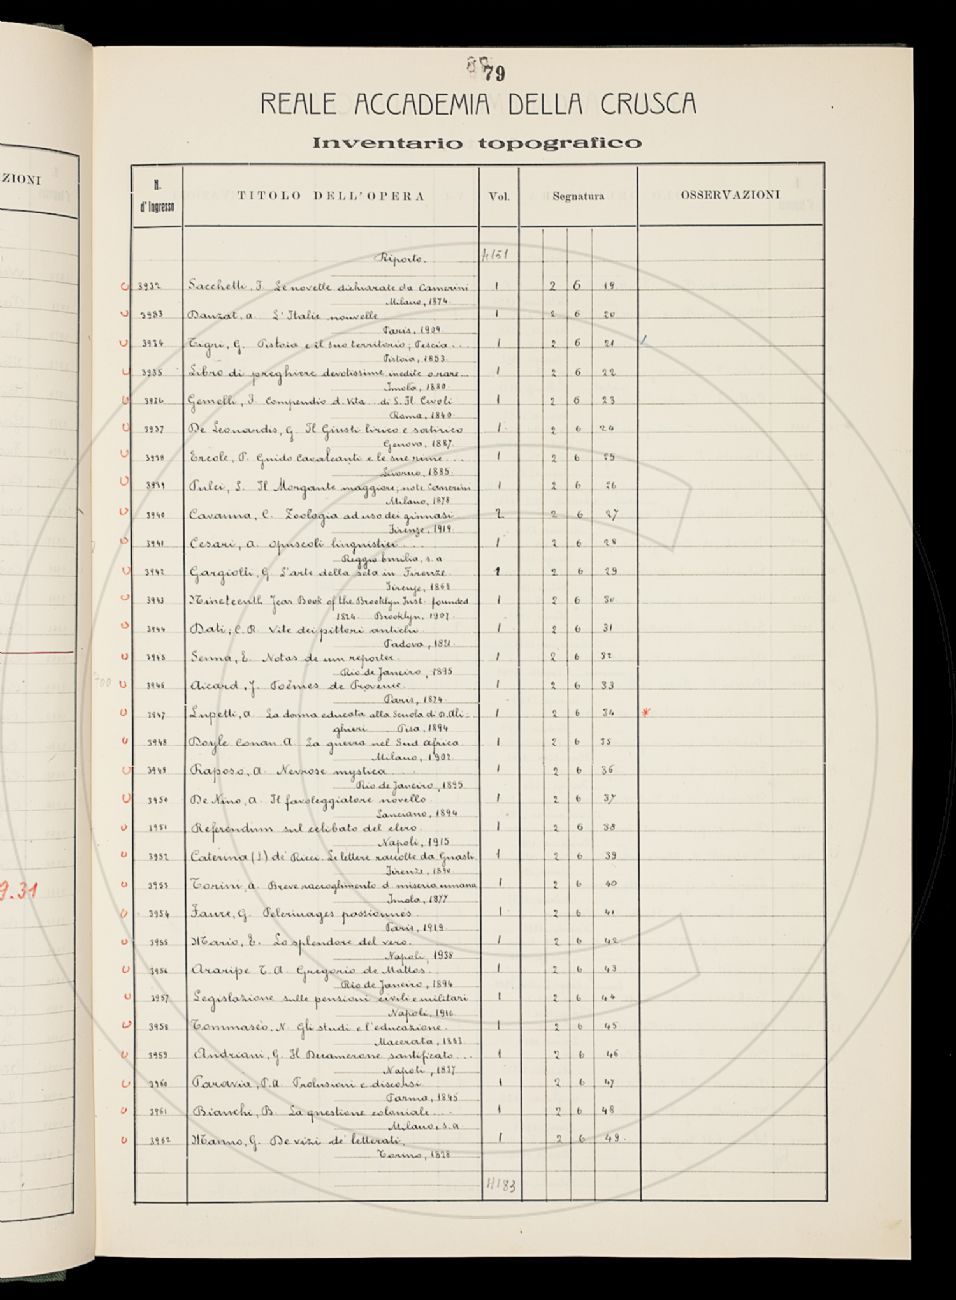 79
REALE ACCADEMIA DELLA CRUSCA
Inventario topografico
ZIONI
N. d'Ingresso TITOLO DELL'OPERA Vol. Segnatura OSSERVAZIONI
Riporto. 4151
3932 Sacchetti, F. Le novelle dichiarate da Camerini 1 2 6 19
Milano, 1874.
3933 Dauzat, A. L'Italie nouvelle 1 2 6 20
Paris, 1909.
3934 Tigri, G. Pistoia e il suo territorio; Pescia... 1 2 6 21
Pistoia, 1853.
3935 Libro di preghiere devotissime inedite o rare... 1 2 6 22
Imola, 1880.
3936 Gemelli, F. Compendio d. vita.. di S. Fl. Civoli 1 2 6 23
Roma, 1840.
3937 De Leonardis, G. Il Giusti lirico e satirico 1 2 6 24
Genova, 1887.
3938 Ercole, P. Guido Cavalcanti e le sue rime... 1 2 6 25
Livorno, 1885.
3939 Pulci, L. Il Morgante maggiore; note Camerini 1 2 6 26
Milano, 1878.
3940 Cavanna, C. Zoologia ad uso dei ginnasi 2 2 6 27
Firenze, 1919.
3941 Cesari, A. Opuscoli linguistici... 1 2 6 28
Reggio Emilia, s.a.
3942 Gargiolli, G. L'arte della seta in Firenze. 1 2 6 29
Firenze, 1868.
3943 Nineteenth Year Book of the Brooklyn Inst. founded 1 2 6 30
1824. Brooklyn, 1907.
3944 Dati, C. R. Vite dei pittori antichi 1 2 6 31
Padova, 1821.
3945 Senna, E. Notas de um reporter. 1 2 6 32
Rio de Janeiro, 1895
3946 Aicard, J. Poèmes de Provence. 1 2 6 33
Paris, 1874.
3947 Lupetti, A. La donna educata alla Scuola di D. Ali- 1 2 6 34 *
ghieri Pisa, 1894
3948 Doyle Conan A. La guerra nel Sud Africa 1 2 6 35
Milano, 1902.
3949 Raposo, A. Nevrose mystica.... 1 2 6 36
Rio de Janeiro, 1895
3950 De Nino, A. Il favoleggiatore novello 1 2 6 37
Lanciano, 1894
3951 Referendum sul celibato del clero. 1 2 6 38
Napoli, 1915
3952 Caterina (S.) de' Ricci. Le lettere raccolte da Guasti. 1 2 6 39
Firenze, 1890
3953 Torini, A. Breve raccoglimento d. miseria umana 1 2 6 40
Imola, 1877
3954 Faure, G. Pèlerinages passionnés. 1 2 6 41
Paris, 1919.
3955 Mario, E. Lo splendore del vero. 1 2 6 42
Napoli, 1938
3956 Araripe T. A. Gregorio de Mattos. 1 2 6 43
Rio de Janeiro, 1894
3957 Legislazione sulle pensioni civili e militari 1 2 6 44
Napoli, 1916.
3958 Tommaseo, N. Gli studi e l'educazione. 1 2 6 45
Macerata, 1883.
3959 Andriani, G. Il Decamerone santificato... 1 2 6 46
Napoli, 1837
3960 Paravia, P. A. Prolusioni e discorsi 1 2 6 47
Parma, 1845
3961 Bianchi, B. La questione coloniale.... 1 2 6 48
Milano, s.a.
3962 Manno, G. De vizi de' letterati. 1 2 6 49.
Torino, 1828
4183
9.31